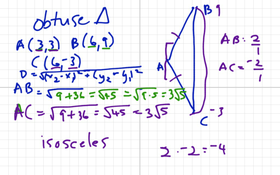 obtuse Δ
A(3,3) B(6,9)
C(6,-3)
D=√(x₂-x₁)²+(y₂-y₁)²
AB=√9+36=√45=√9·5=3√5
AC=√9+36=√45=3√5
isosceles
B 9
A
C -3
AB: 2/1
AC=-2/1
2·-2=-4